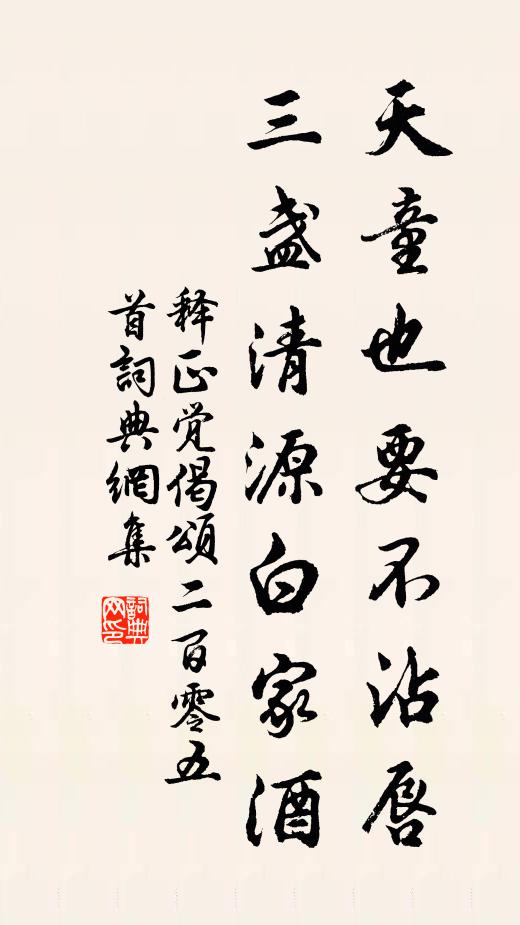 天童也要不沾唇
三盏清源白家酒
释正觉偈頌二百零五
首詞典網集
詞典网印